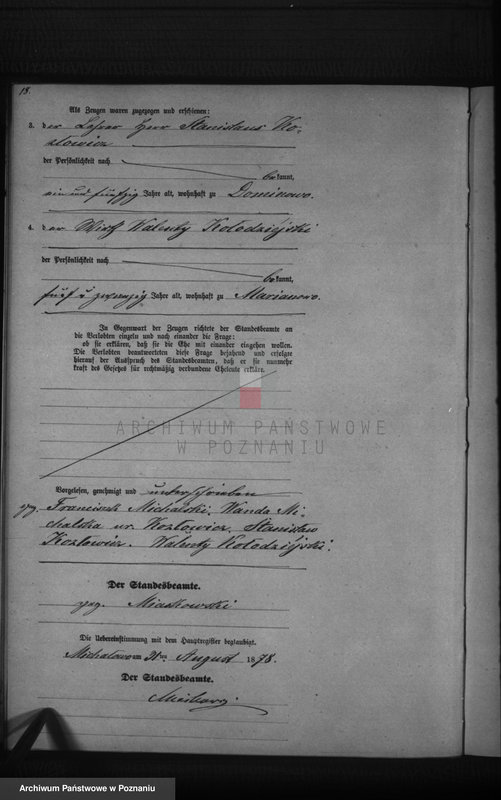 18.
Als Zeugen waren zugezogen und erschienen:
3. der Lehrer Herr Stanislaus Ko-
złowicz
der Persönlichkeit nach
be kannt,
ein und fünfzig Jahre alt, wohnhaft zu Dominowo.
4. der Wirth Walenty Kołodziéjski
der Persönlichkeit nach
be kannt,
fünf u zwanzig Jahre alt, wohnhaft zu Marianowo.
In Gegenwart der Zeugen richtete der Standesbeamte an
die Verlobten einzeln und nach einander die Frage:
ob sie erklären, daß sie die Ehe mit einander eingehen wollen.
Die Verlobten beantworteten diese Frage bejahend und erfolgte
hierauf der Ausspruch des Standesbeamten, daß er sie nunmehr
kraft des Gesetzes für rechtmäßig verbundene Eheleute erkläre.
ARCHIWUM PAŃSTWOWE
W POZNANIU
Vorgelesen, genehmigt und unterschrieben
gez. Franciszek Michalski. Wanda Mi-
chalska ur. Kozłowicz. Stanisław
Kozłowicz. Walenty Kołodziéjski.
Der Standesbeamte.
gez. Miaskowski
Die Uebereinstimmung mit dem Hauptregister beglaubigt.
am 31ten August 1878.
Der Standesbeamte.
Archiwum Państwowe w Poznaniu